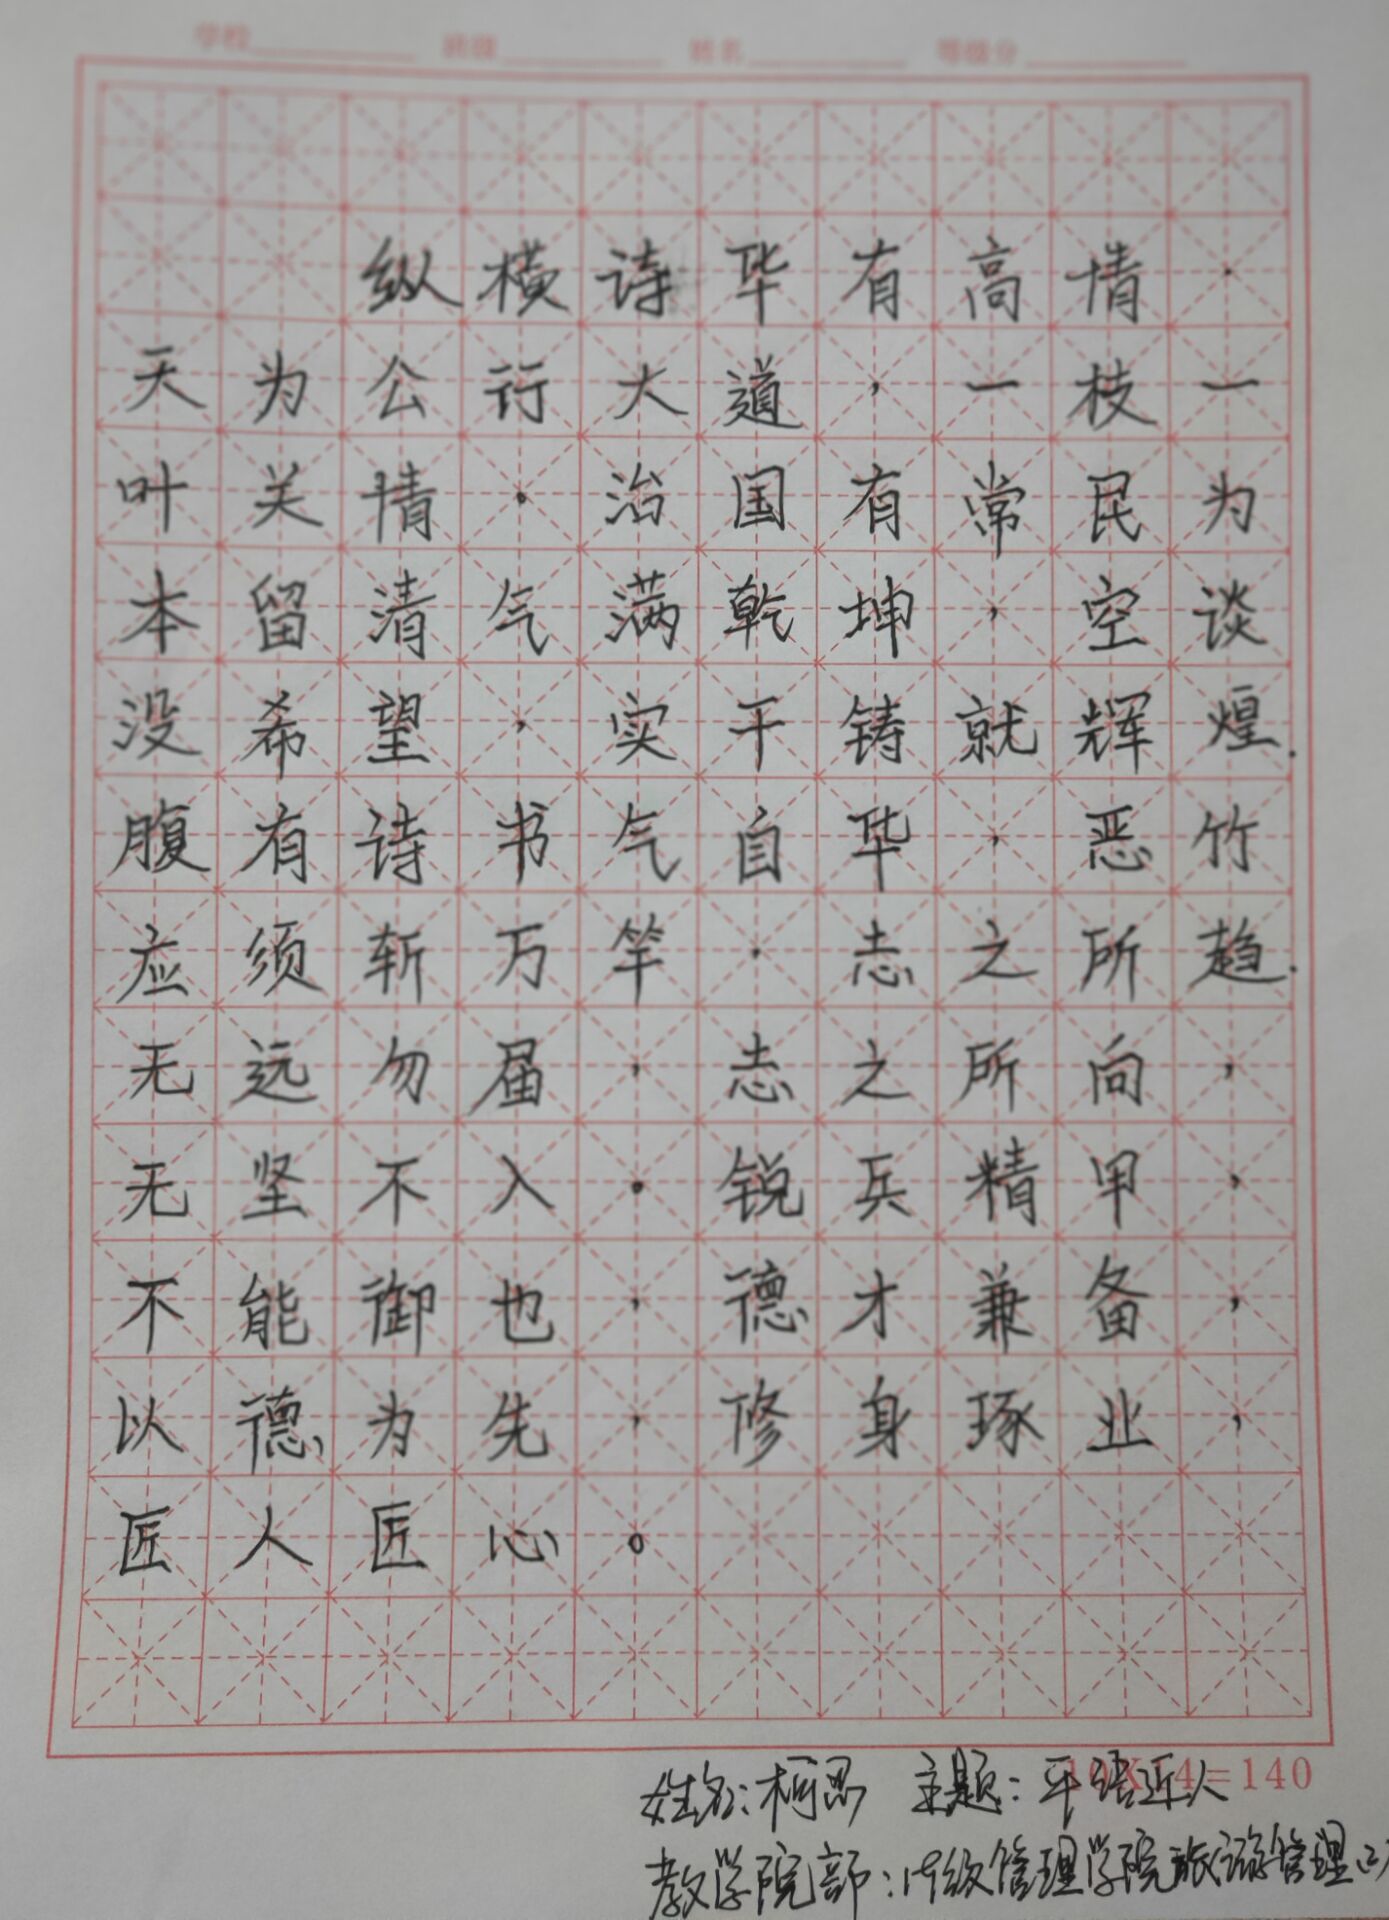 学校 班级 姓名 等级分
纵横诗华有高情.
天为公行大道，一枝一
叶关情.治国有常民为
本留清气满乾坤，空谈
没希望，实干铸就辉煌.
腹有诗书气自华，恶竹
应须斩万竿.志之所趋.
无远勿届，志之所向，
无坚不入.锐兵精甲，
不能御也，德才兼备，
以德为先，修身琢业，
匠人匠心。
10×14=140
姓名:柯思 主题:平语近人
教学院部:19级管理学院旅游管理